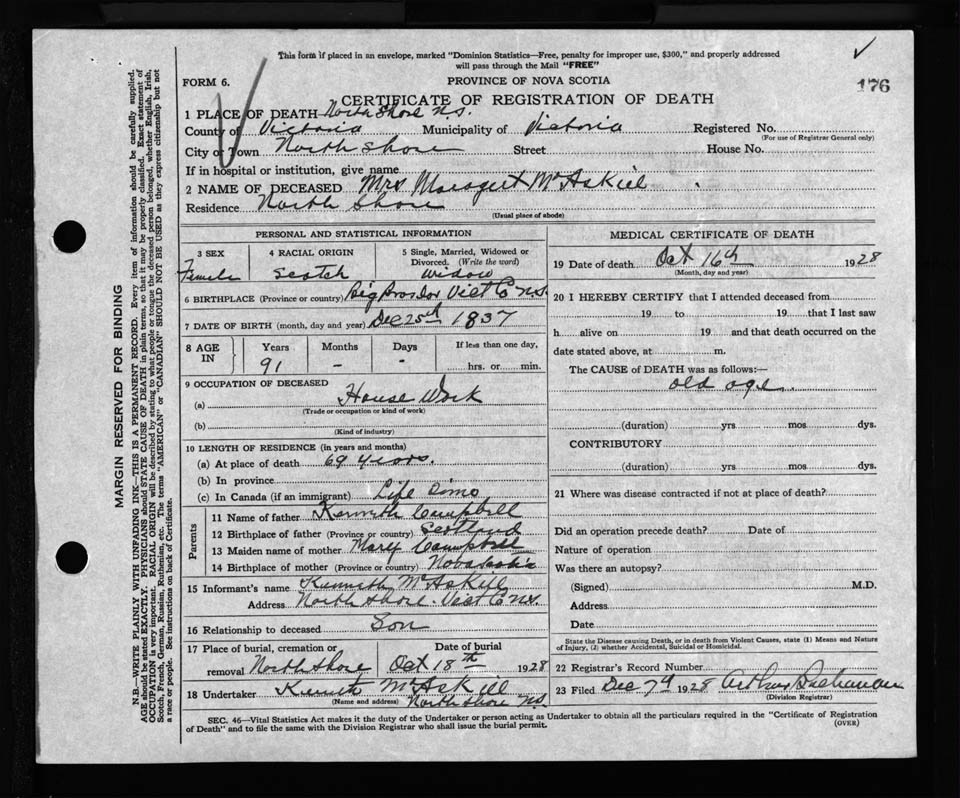 This form if placed in an envelope, marked "Dominion Statistics—Free, penalty for improper use, $300," and properly addressed
will pass through the Mail "FREE"
FORM 6.
PROVINCE OF NOVA SCOTIA
176
CERTIFICATE OF REGISTRATION OF DEATH
1 PLACE OF DEATH North Shore N.S.
County of Victoria Municipality of Victoria Registered No.
(For use of Registrar General only)
City or Town North Shore Street House No.
If in hospital or institution, give name
2 NAME OF DECEASED Mrs Margret McAskill
Residence North Shore
(Usual place of abode)
PERSONAL AND STATISTICAL INFORMATION
3 SEX 4 RACIAL ORIGIN 5 Single, Married, Widowed or
Divorced. (Write the word)
Female Scotch Widow
6 BIRTHPLACE (Province or country) Big Brasdor Vict Co N.S.
7 DATE OF BIRTH (month, day and year) Dec 25th 1837
8 AGE IN Years Months Days If less than one day,
91 - - hrs. or min.
9 OCCUPATION OF DECEASED
(a) House Work
(Trade or occupation or kind of work)
(b)
(Kind of industry)
10 LENGTH OF RESIDENCE (in years and months)
(a) At place of death 69 years.
(b) In province
(c) In Canada (if an immigrant) Life Time
Parents
11 Name of father Kenneth Campbell
12 Birthplace of father (Province or country) Scotland
13 Maiden name of mother Mary Campbell
14 Birthplace of mother (Province or country) Nova Scotia
15 Informant's name Kenneth McAskill
Address North Shore Vict Co N.S.
16 Relationship to deceased Son
17 Place of burial, cremation or Date of burial
removal North Shore Oct 18th 1928
18 Undertaker Kenneth McAskill
(Name and address) North Shore N.S.
MEDICAL CERTIFICATE OF DEATH
19 Date of death Oct 16th 1928
(Month, day and year)
20 I HEREBY CERTIFY that I attended deceased from
19 to 19 that I last saw
h alive on 19 and that death occurred on the
date stated above, at m.
The CAUSE of DEATH was as follows:—
old age
(duration) yrs mos dys.
CONTRIBUTORY
(duration) yrs mos dys.
21 Where was disease contracted if not at place of death?
Did an operation precede death? Date of
Nature of operation
Was there an autopsy?
(Signed) M.D.
Address
Date
State the Disease causing Death, or in death from Violent Causes, state (1) Means and Nature
of Injury, (2) whether Accidental, Suicidal or Homicidal.
22 Registrar's Record Number
23 Filed Dec 7th 1928 Arthur Buchanan
(Division Registrar)
SEC. 46—Vital Statistics Act makes it the duty of the Undertaker or person acting as Undertaker to obtain all the particulars required in the "Certificate of Registration
of Death" and to file the same with the Division Registrar who shall issue the burial permit. (OVER)
MARGIN RESERVED FOR BINDING
N.B.—WRITE PLAINLY WITH UNFADING INK—THIS IS A PERMANENT RECORD. Every item of information should be carefully supplied.
AGE should be stated EXACTLY. PHYSICIANS should STATE CAUSE OF DEATH in plain terms, so that it may be properly classified. Exact statement of
OCCUPATION is very important. RACIAL ORIGIN will be described by stating to what people or tongue the deceased person belonged, whether English, Irish,
Scotch, French, German, Russian, Ruthenian, etc. The terms "AMERICAN" or "CANADIAN" SHOULD NOT BE USED as they express citizenship but not
a race or people. See instructions on back of Certificate.